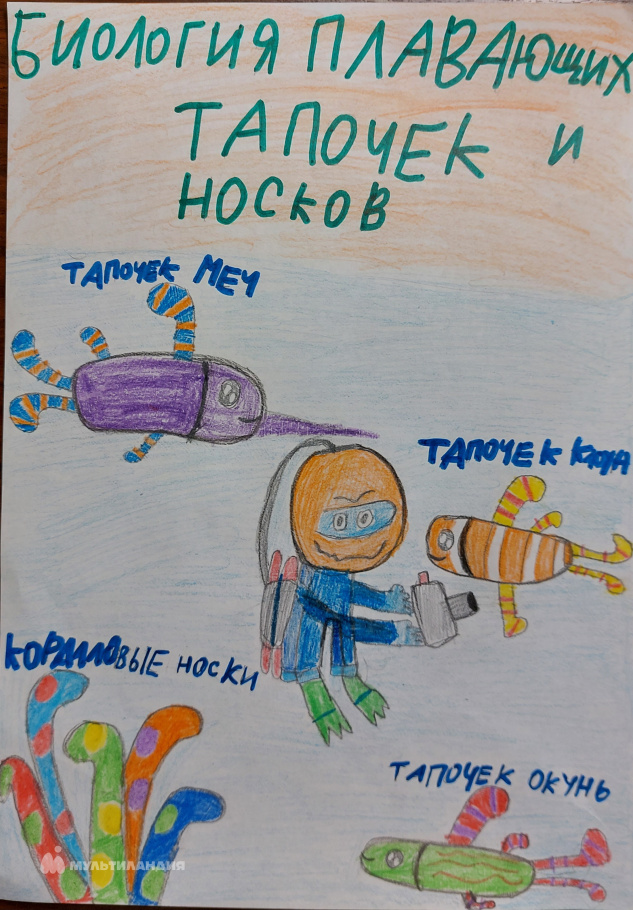 БИОЛОГИЯ ПЛАВАЮЩИХ
ТАПОЧЕК И
НОСКОВ
ТАПОЧЕК МЕЧ
ТАПОЧЕК
КОРАЛЛОВЫЕ НОСКИ
ТАПОЧЕК ОКУНЬ
МУЛЬТИЛАНДИЯ